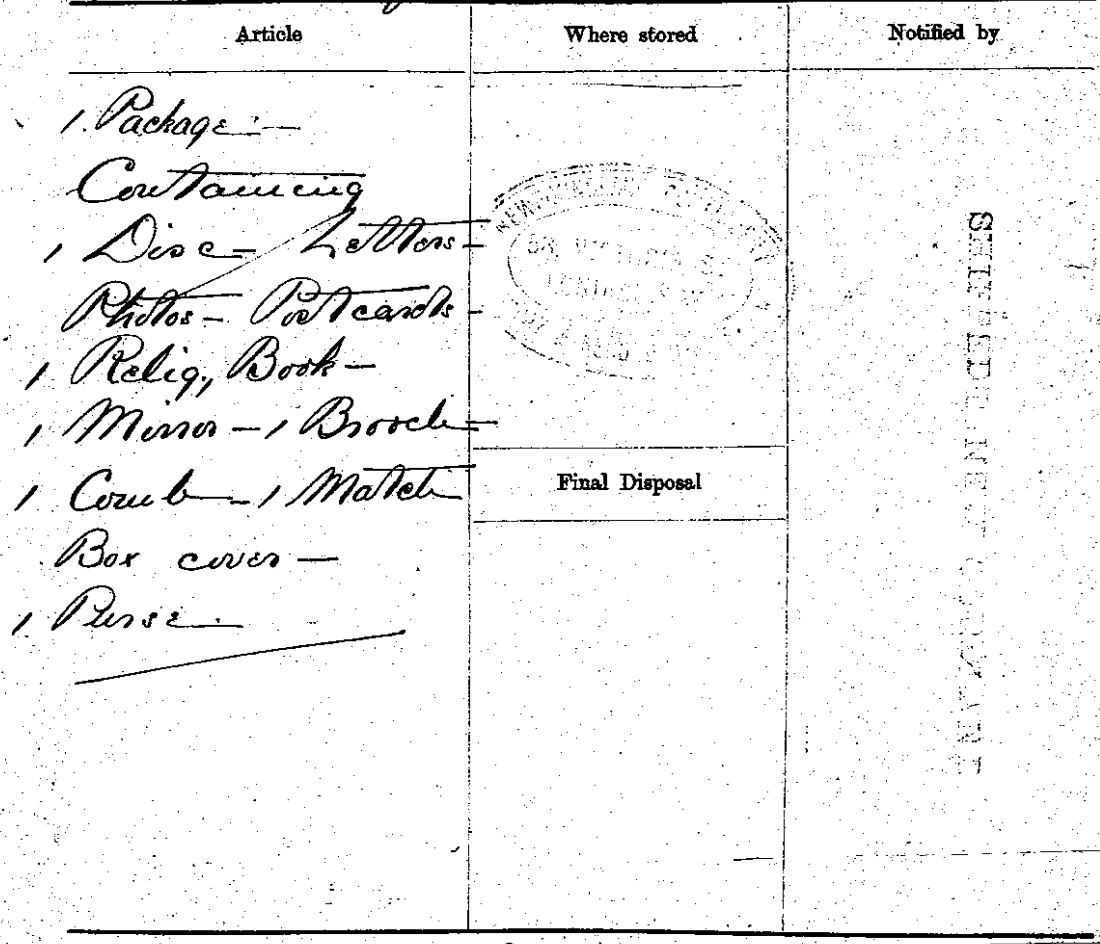 Article
Where stored
Notified by
1 Package :—
Containing
1 Disc — Letters —
Photos — Postcards —
1 Relig, Book —
1 Mirror — 1 Brooch —
1 Comb — 1 Match
Box cover —
1 Purse —
Final Disposal